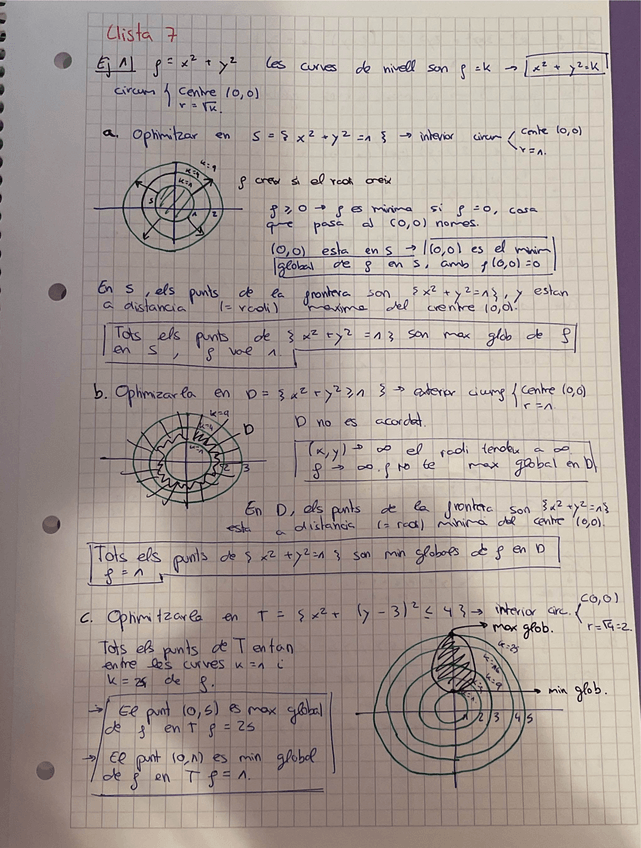 Llista 7
Ej 1 f = x² + y² Les curves de nivell son f = k → x² + y² = k
circum { centre (0,0)
r = √k.
a. Ophmitzar en S = { x² + y² = 1 } → interior circum { cente (0,0)
r = 1.
k=9
k=4
k=1
S
1 2
f creix si el radi creix
f ≥ 0 → f es minima si f = 0, cosa
que pasa al (0,0) nomes.
(0,0) esta en S → (0,0) es el minim
global de f en S, amb f(0,0) = 0
En S, els punts de la frontera son { x² + y² = 1 }, y estan
a distancia (= radi) maxima del centre (0,0).
Tots els punts de { x² + y² = 1 } son max glob de f
en S, f val 1.
b. Ophmizarla en D = { x² + y² ≥ 1 } → exterior circum { centre (0,0)
r = 1.
k=9
k=4
k=1
D
2 3
D no es acotat.
(x,y) → ∞ el radi tendeix a ∞
f → ∞. f no te max global en D
En D, els punts de la frontera son { x² + y² = 1 }
esta a distancia (= radi) minima del centre (0,0).
Tots els punts de { x² + y² = 1 } son min globals de f en D
f = 1
c. Ophmitzarla en T = { x² + (y - 3)² ≤ 4 } → interior circ. { (0,0)
r = √4 = 2
max glob.
Tots els punts de T entan
entre les curves k = 1 i
k = 25 de f.
k=25
k=16
k=9
min glob.
1 2 3 4 5
→ El punt (0,5) es max global
de f en T f = 25
→ El punt (0,1) es min global
de f en T f = 1.